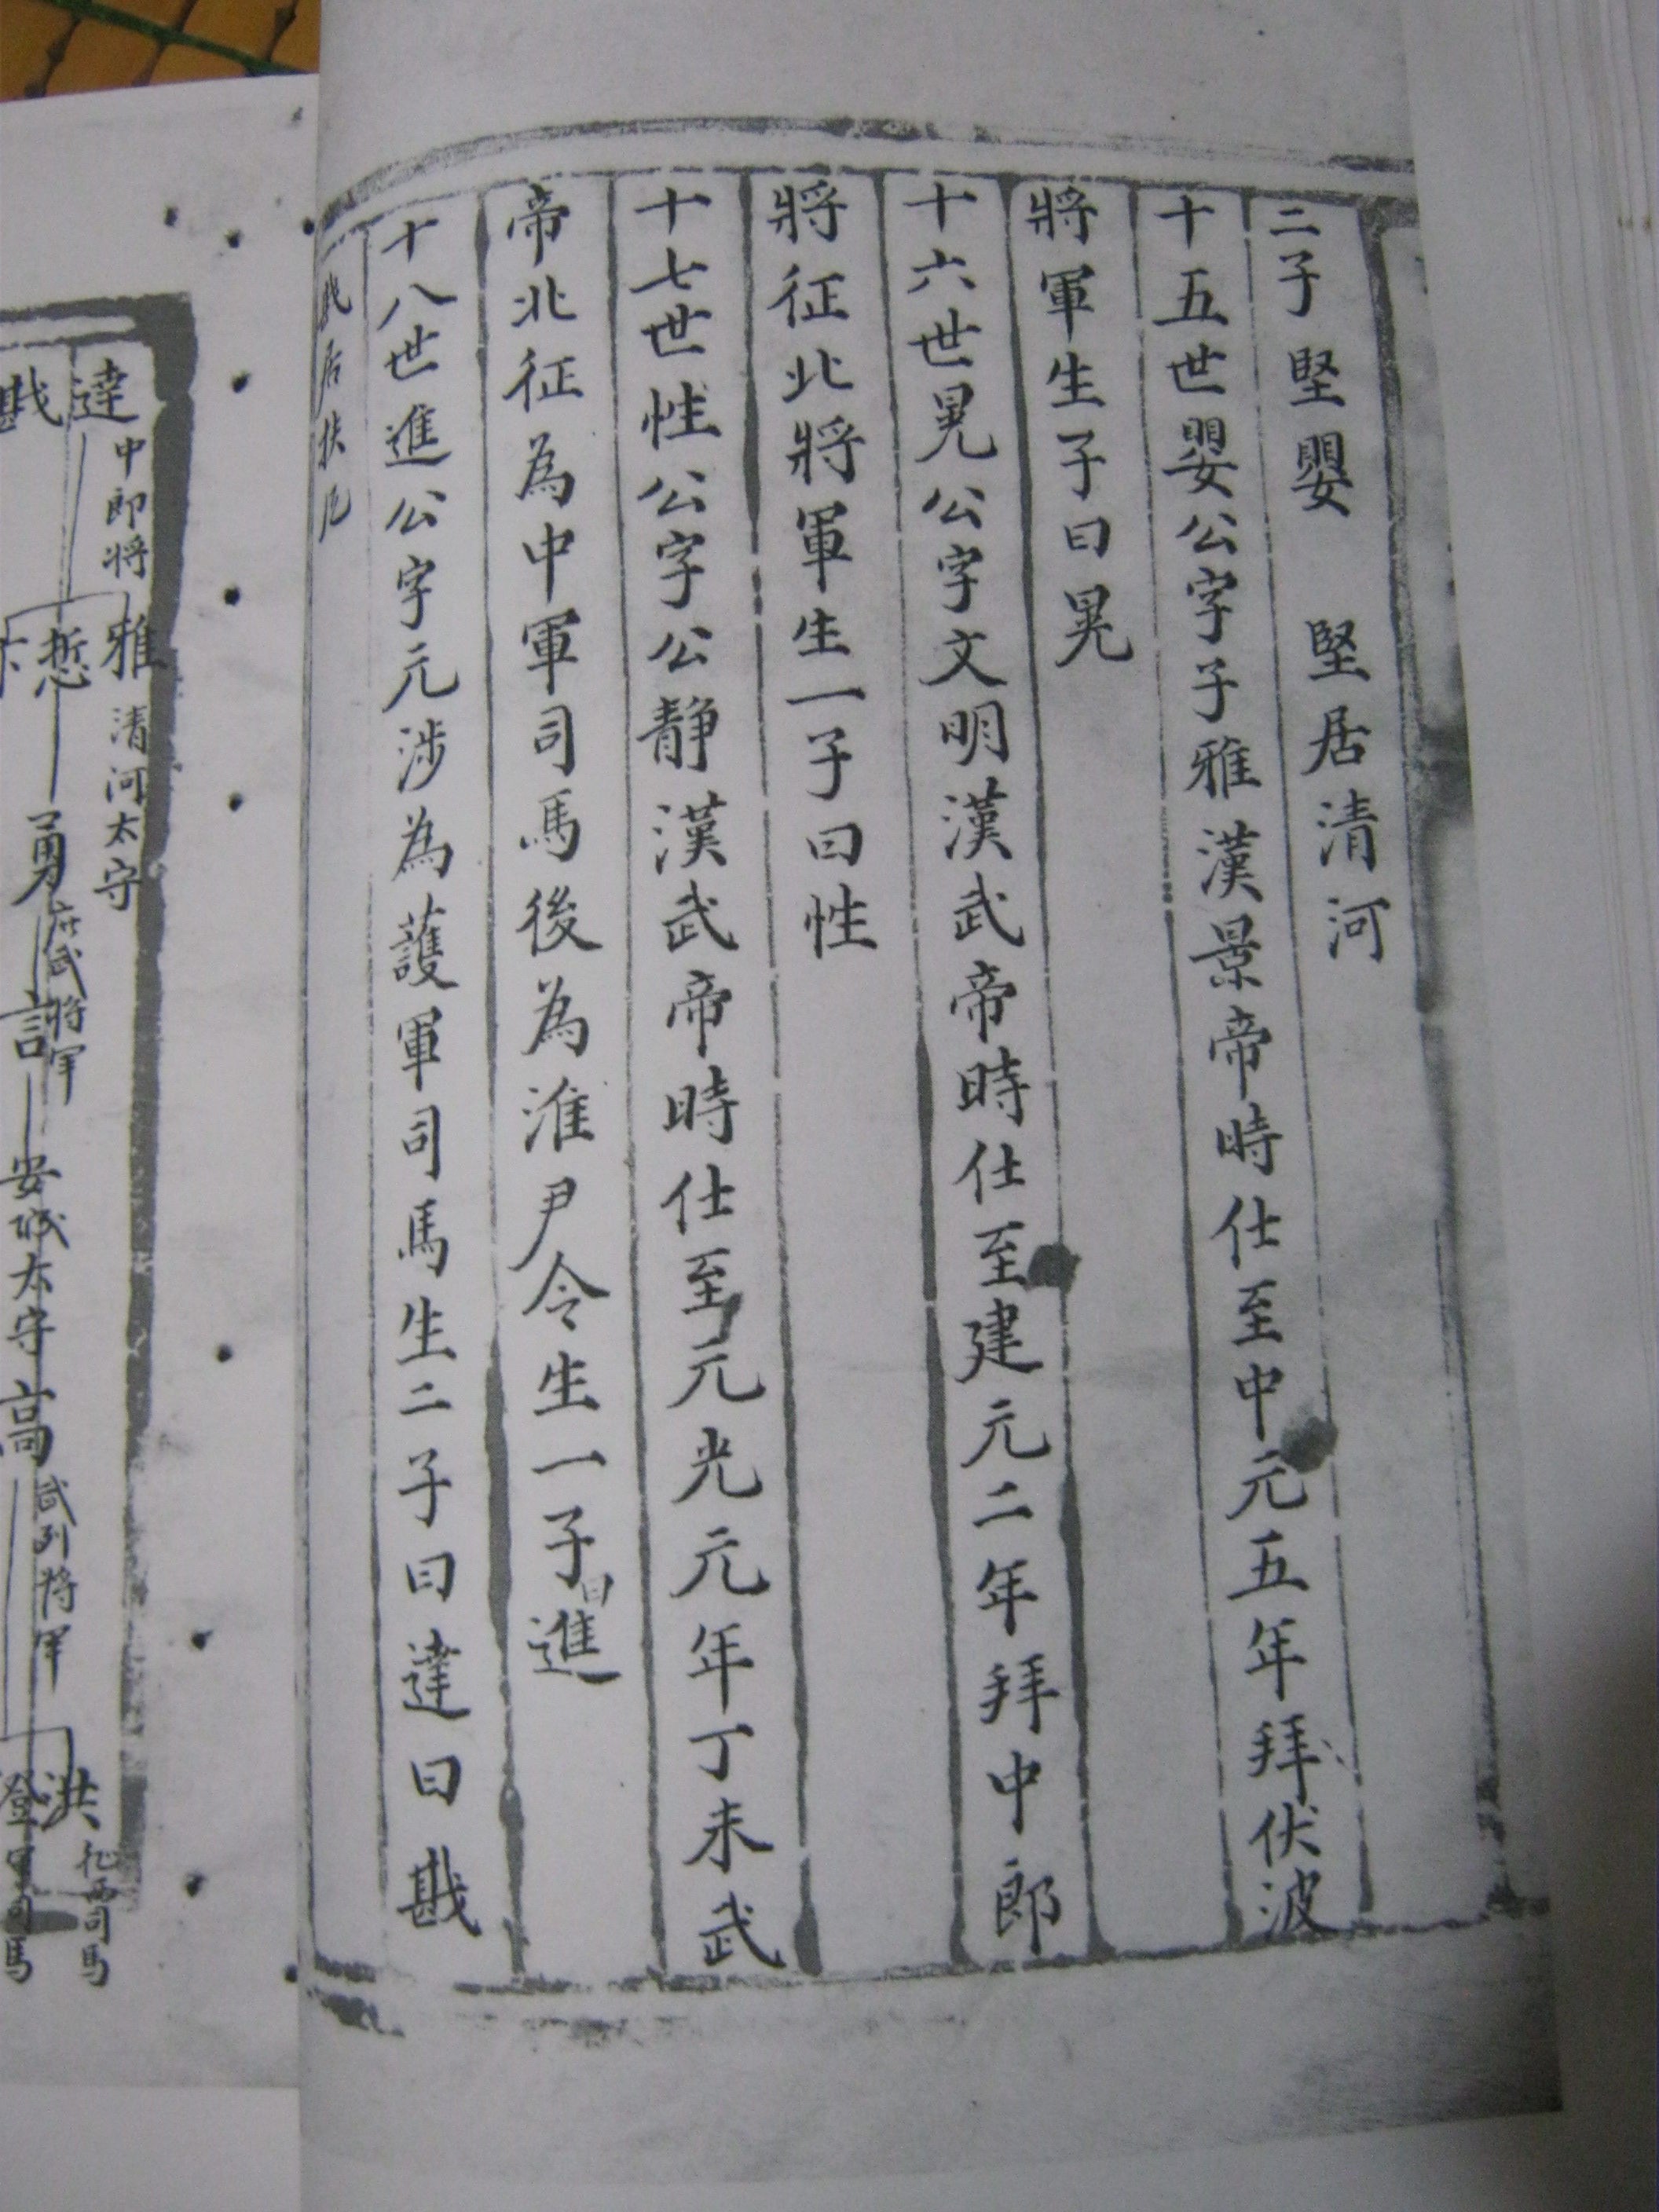 二子堅嬰　堅居清河
十五世嬰公字子雅漢景帝時仕至中元五年拜伏波
將軍生子曰晃
十六世晃公字文明漢武帝時仕至建元二年拜中郎
將征北將軍生一子曰性
十七世性公字公靜漢武帝時仕至元光元年丁未武
帝北征為中軍司馬後為淮尹令生一子曰進
十八世進公字元涉為護軍司馬生二子曰達曰戡
居扶
達 中郎將 雅 清河太守
戡 悊 勇 武將軍 安城太守 高 武列將軍 洪 征西司馬
登 軍司馬